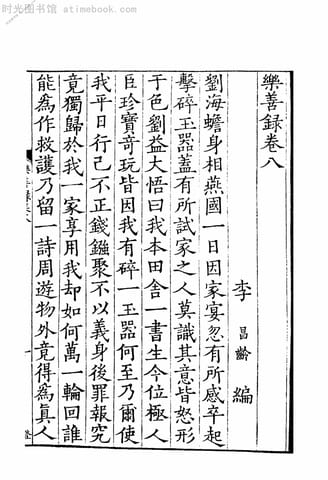 时光图书馆 atimebook.com
樂善録卷八
李昌齡編
劉海蟾身相燕國一日因家宴忽有所感卒起
擊碎玉器蓋有所試家之人莫識其意皆怒形
于色劉益大悟曰我本田舎一書生今位極人
臣珍寶奇玩皆因我有碎一玉器何至乃爾使
我平日行己不正錢鏹聚不以義身後罪報究
竟獨歸於我一家享用我却如何萬一輪回誰
能爲作救護乃留一詩周遊物外竟得爲眞人